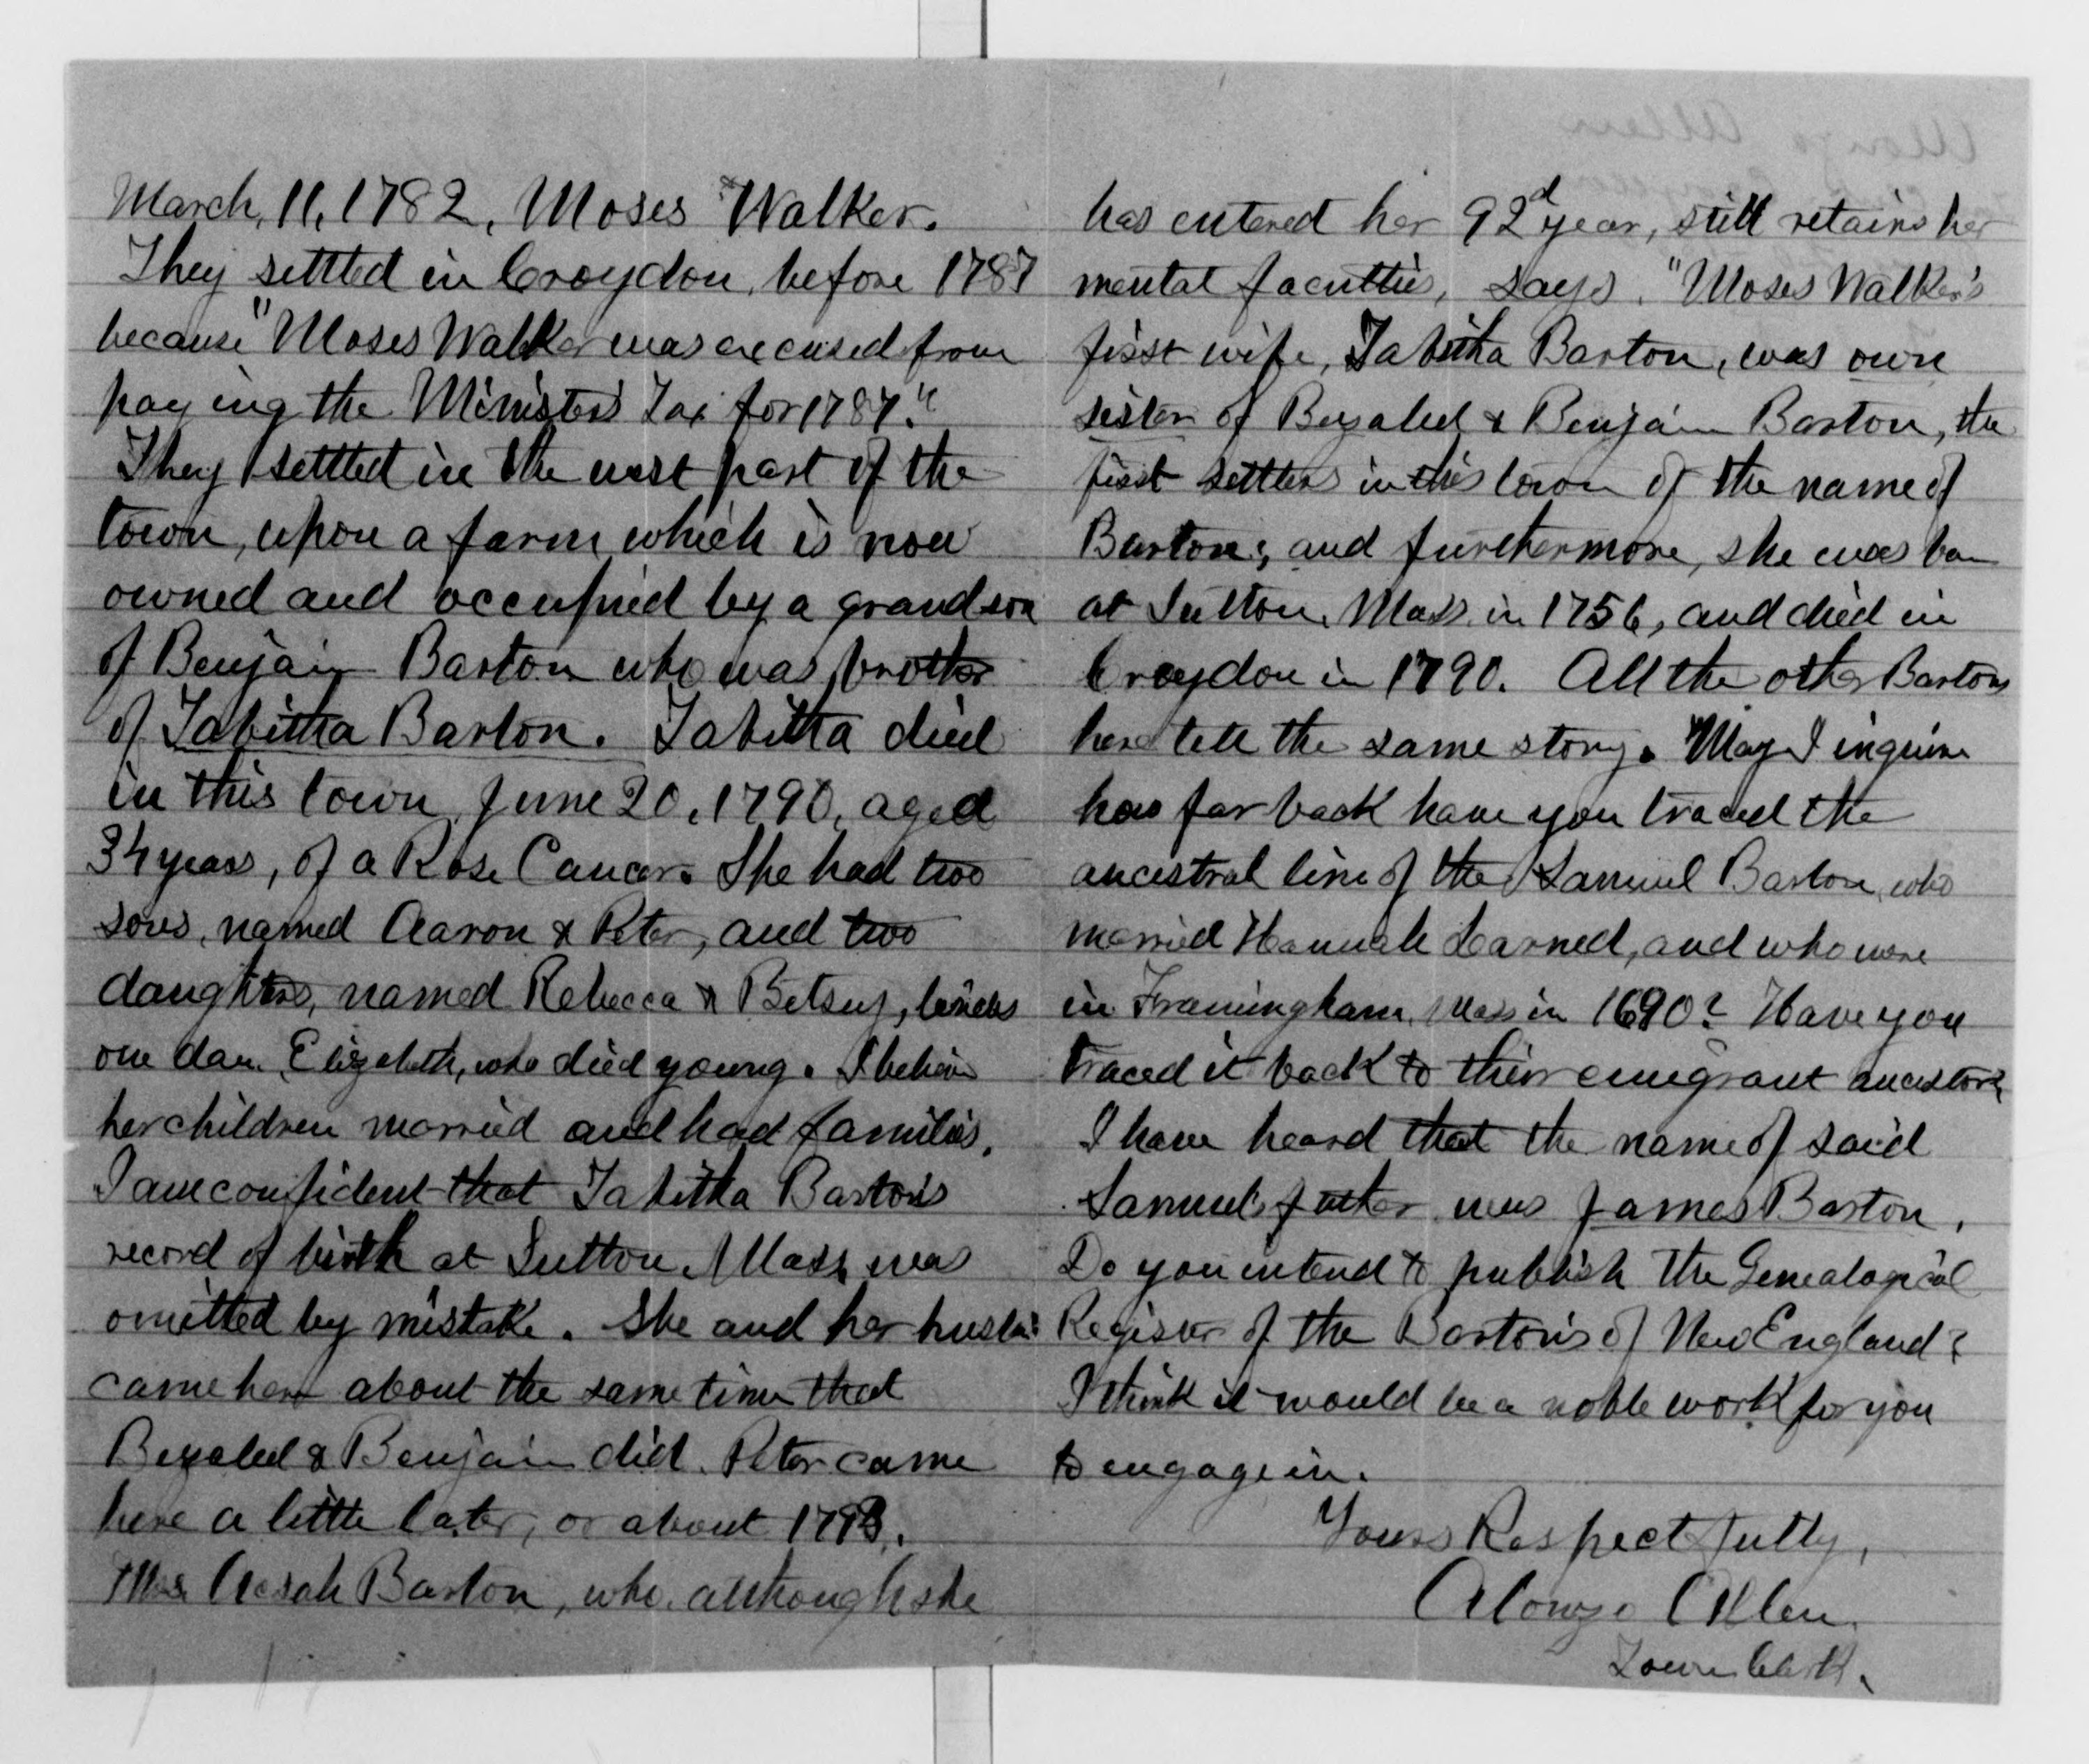 March, 11, 1782, Moses Walker.
They settled in Croydon, before 1787
because "Moses Walker was excused from
paying the Minister's Tax for 1787."
They settled in the west part of the
town, upon a farm which is now
owned and occupied by a grandson
of Benjain Barton who was brother
of Tabitha Barton. Tabitha died
in this town, June 20, 1790, aged
34 years, of a Rose Cancer. She had two
sons, named Aaron & Peter, and two
daughters, named Rebecca & Betsey, besides
one dau. Elizabeth, who died young. I believe
her children married and had families.
I am confident that Tabitha Barton's
record of birth at Sutton, Mass. was
omitted by mistake. She and her husba
came here about the same time that
Bezaleel & Benjain did. Peter came
here a little later, or about 1793.
Mrs. Barton, who, although she
has entered her 92d year, still retains her
mental faculties, says, "Moses Walker's
first wife, Tabitha Barton, was own
sister of Bezaleel & Benjain Barton, the
first settlers in this town of the name of
Barton; and furthermore, she was born
at Sutton, Mass. in 1756, and died in
Croydon in 1790. All the other Bartons
here tell the same story. May I inquire
how far back have you traced the
ancestral line of the Samuel Barton, who
married Hannah Learned, and who were
in Framingham, Mass in 1690? Have you
traced it back to their emigrant ancestor?
I have heard that the name of said
Samuel's father was James Barton.
Do you intend to publish the Genealogical
Register of the Barton's of New England?
I think it would be a noble work for you
to engage in.
Yours Respectfully,
Alonzo Allen,
Town Clerk.